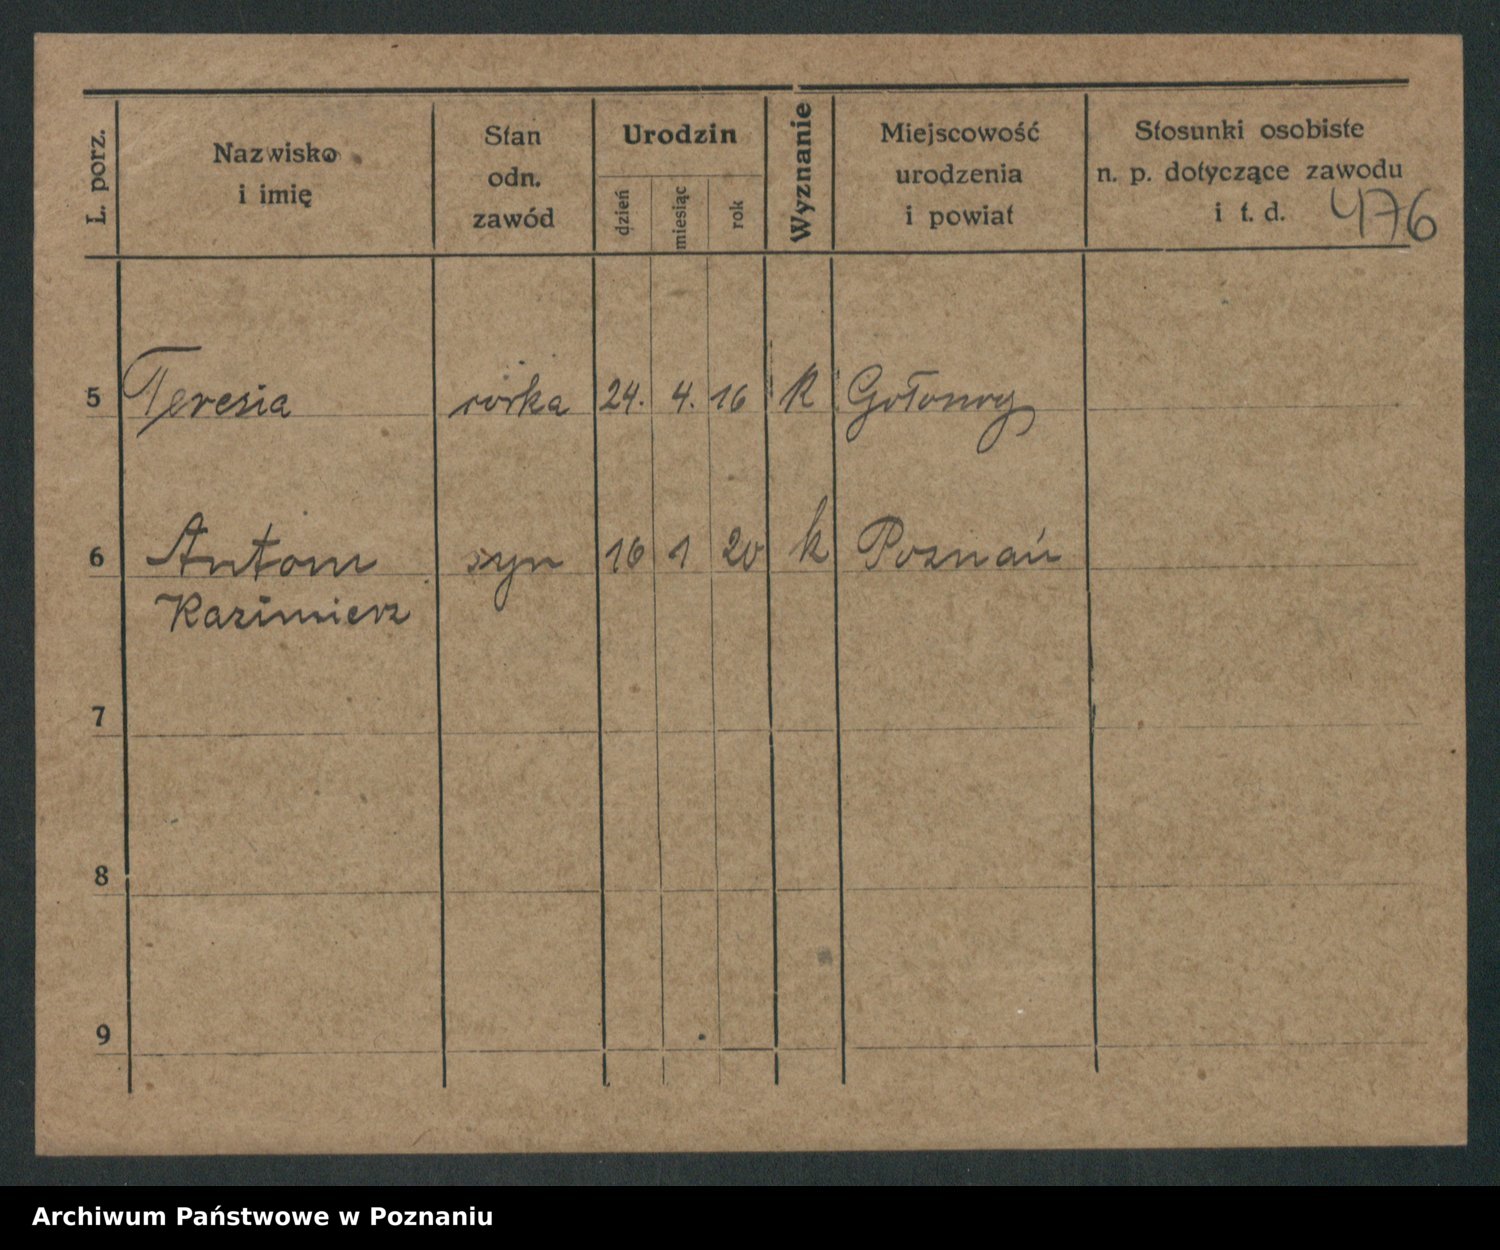 L. porz.
Nazwisko
i imię
Stan
odn.
zawód
Urodzin
dzień
miesiąc
rok
Wyznanie
Miejscowość
urodzenia
i powiat
Stosunki osobiste
n. p. dotyczące zawodu
i t. d.
476
5 Teresia córka 24. 4. 16 k Gołonog
6 Antoni syn 16 1 20 k Poznań
Kazimierz
7
8
9
Archiwum Państwowe w Poznaniu